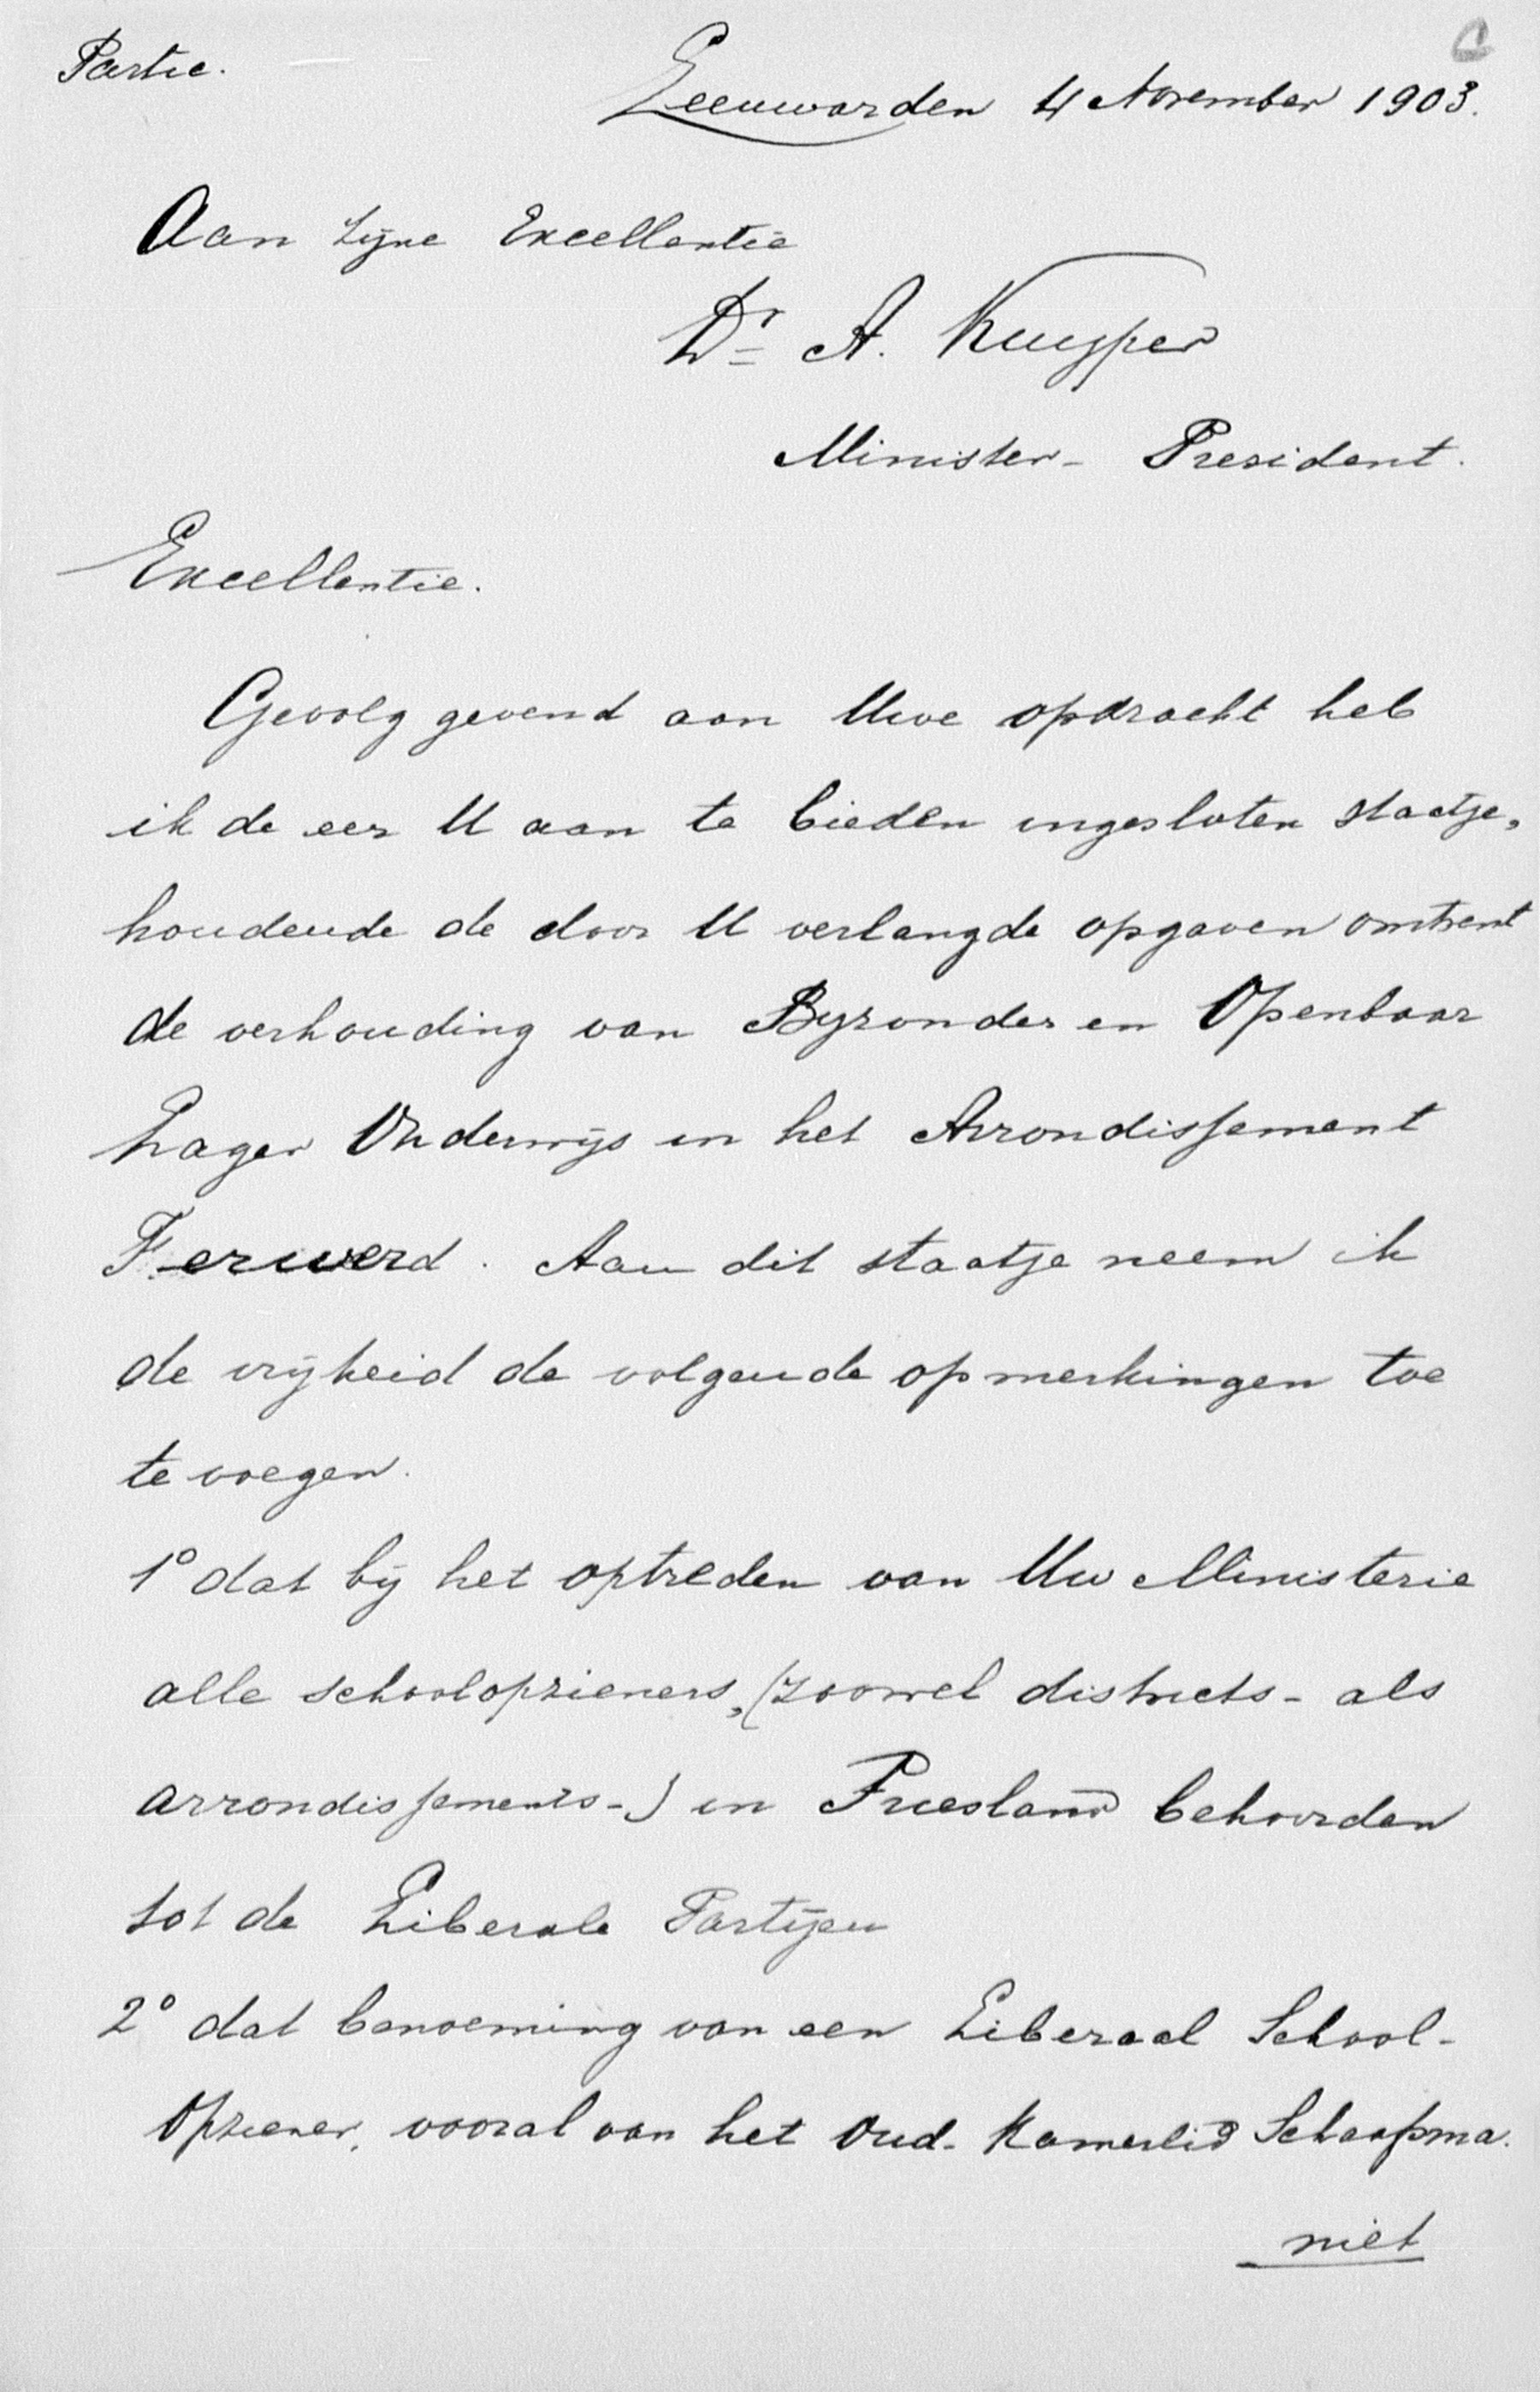 Partic.
Leeuwarden 4 November 1903.
Aan Zijne Excellentie
Dr A. Kuyper
Minister-President.
Excellentie.
Gevolg gevend aan Uwe opdracht heb
ik de eer U aan te bieden ingesloten staatje,
houdende de door U verlangde opgaven omtrent
de verhouding van Byzonder en Openbaar
Lager Onderwijs in het Arrondissement
Ferwerd. Aan dit staatje neem ik
de vrijheid de volgende opmerkingen toe
te voegen.
1o dat bij het optreden van Uw Ministerie
alle schoolopzieners, (zoowel districts- als
arrondissements-) in Friesland behoorden
tot de Liberale Partijen
2o dat benoeming van een Liberaal School-
Opziener, vooral van het Oud-Kamerlid Schaafsma.
niet